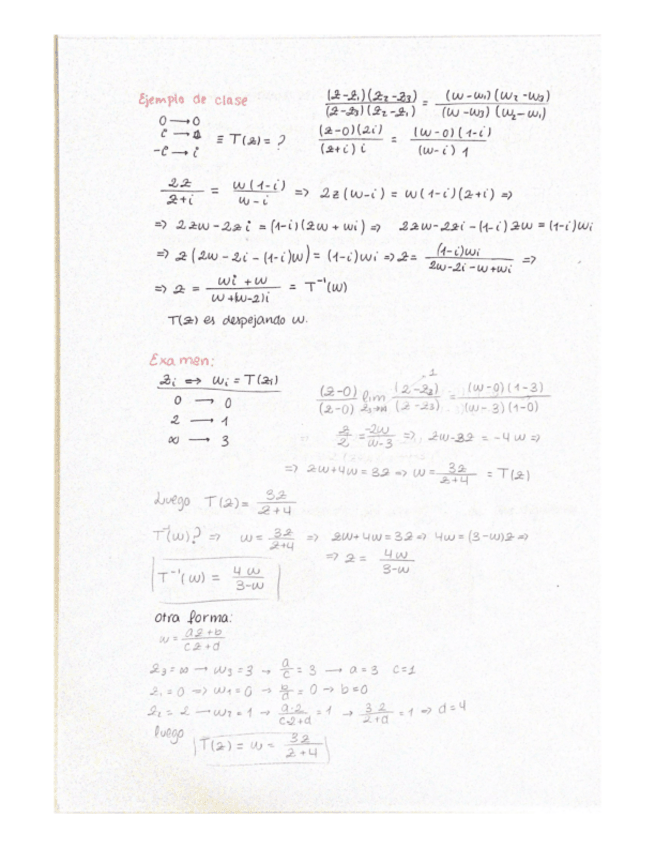 Ejemplo de clase
(z-z₁)(z₂-z₃) / (z-z₃)(z₂-z₁) = (w-w₁)(w₂-w₃) / (w-w₃)(w₂-w₁)
0 → 0
i → 1
-i → i
≡ T(z) = ?
(z-0)(2i) / (z+i) i = (w-0)(1-i) / (w-i) 1
2z / z+i = w(1-i) / w-i => 2z(w-i) = w(1-i)(z+i) =>
=> 2zw-2zi = (1-i)(zw+wi) => 2zw-2zi-(1-i)zw = (1-i)wi
=> z(2w-2i-(1-i)w) = (1-i)wi => z = (1-i)wi / 2w-2i-w+wi =>
=> z = wi+w / w+(w-2)i = T⁻¹(w)
T(z) es despejando w.
Examen:
zᵢ ↔ wᵢ = T(zᵢ)
0 → 0
2 → 1
∞ → 3
(z-0) / (2-0) lim z₃→∞ (2-z₃) / (z-z₃) = (w-0)(1-3) / (w-3)(1-0)
1
z/2 = -2w / w-3 => zw-3z = -4w =>
=> zw+4w = 3z => w = 3z / z+4 = T(z)
Luego T(z) = 3z / z+4
T⁻¹(w)? => w = 3z / z+4 => zw+4w = 3z => 4w = (3-w)z =>
=> z = 4w / 3-w
T⁻¹(w) = 4w / 3-w
otra forma:
w = az+b / cz+d
z₃ = ∞ → w₃ = 3 → a/c = 3 → a = 3 c = 1
z₁ = 0 => w₁ = 0 → b/d = 0 → b = 0
z₂ = 2 → w₂ = 1 → a·2 / c·2+d = 1 → 3·2 / 2+d = 1 => d = 4
luego T(z) = w = 3z / z+4